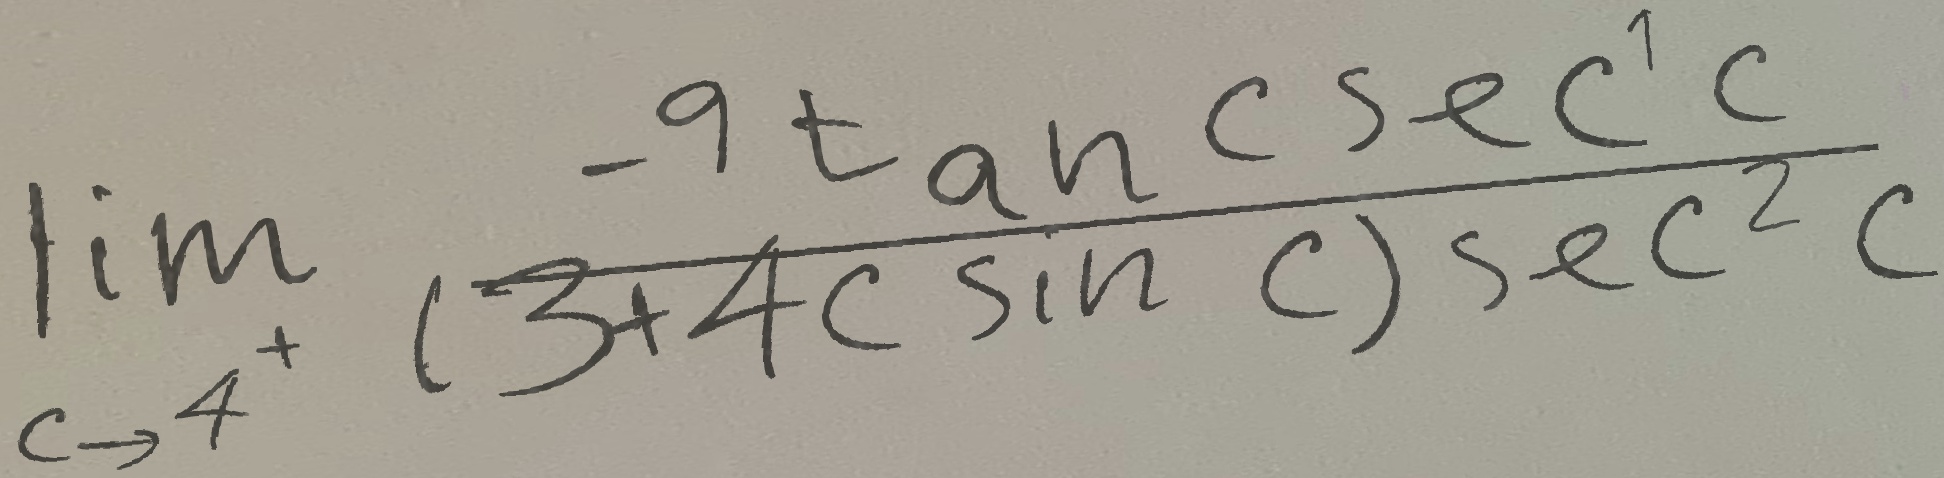 \lim_{c \to 4^+} \frac{-9 \tan c \sec^1 c}{(3+4c \sin c) \sec^2 c}